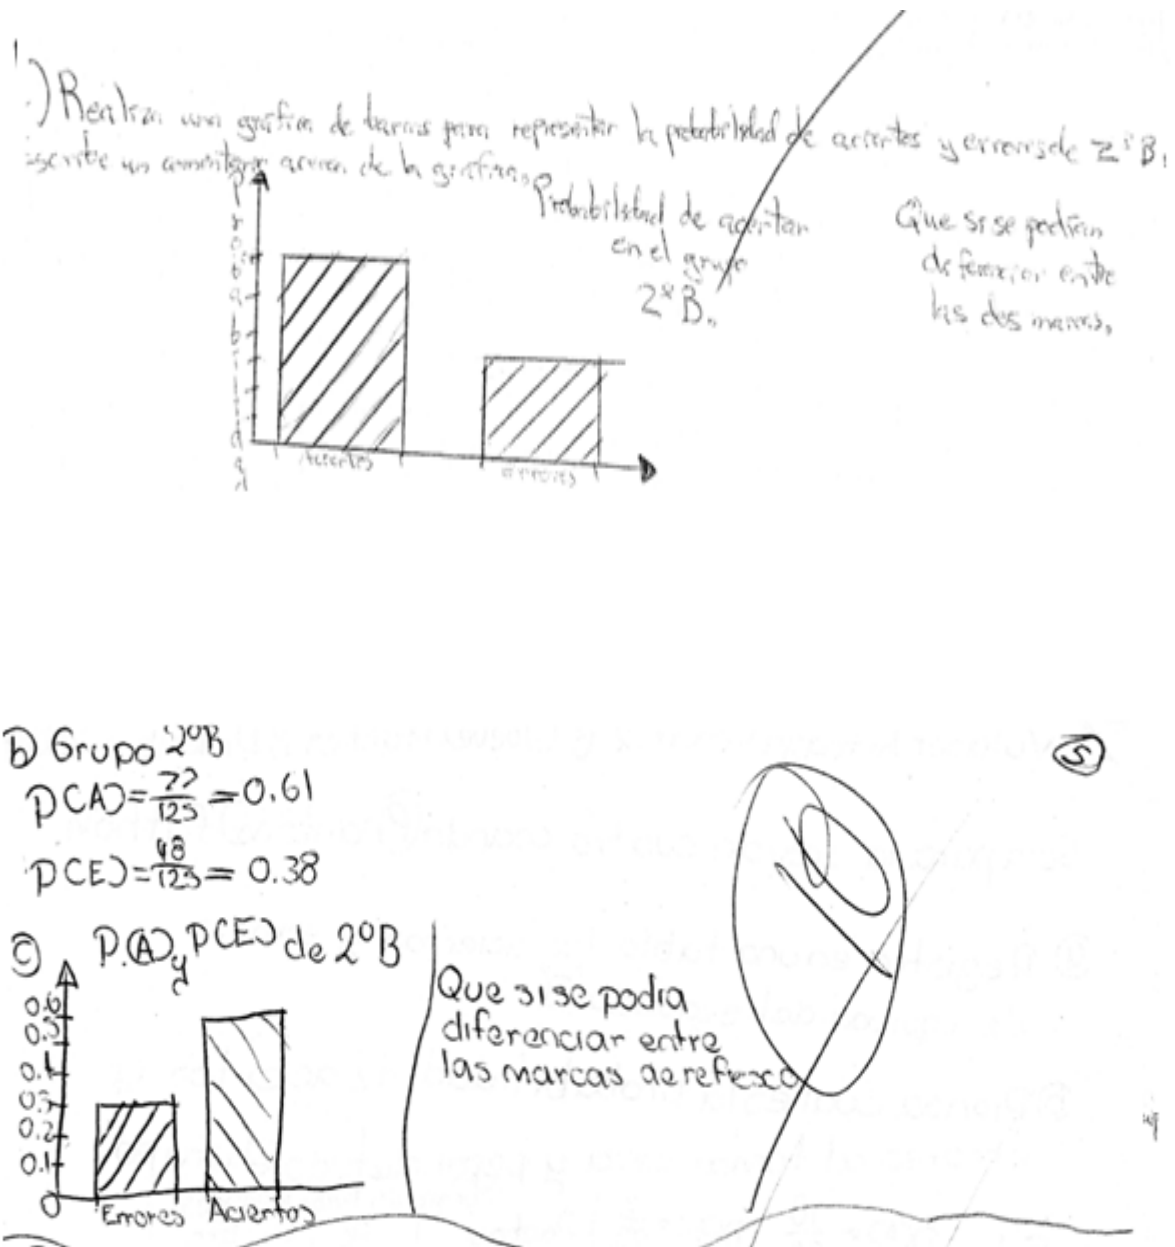 ) Realiza una gráfica de barras para representar la probabilidad de aciertos y errores de 2°B,
escribe un comentario acerca de la gráfica,
Probabilidad
Probabilidad de acertar
en el grupo
2°B,,
Que si se podían
diferenciar entre
las dos marcas,
Aciertos
errores
b) Grupo 2°B
P(A)=77/125=0.61
P(E)=48/125=0.38
5
c) P(A) y P(E) de 2°B
0.6
0.5
0.4
0.3
0.2
0.1
0
Errores Aciertos
Que si se podia
diferenciar entre
las marcas de refresco